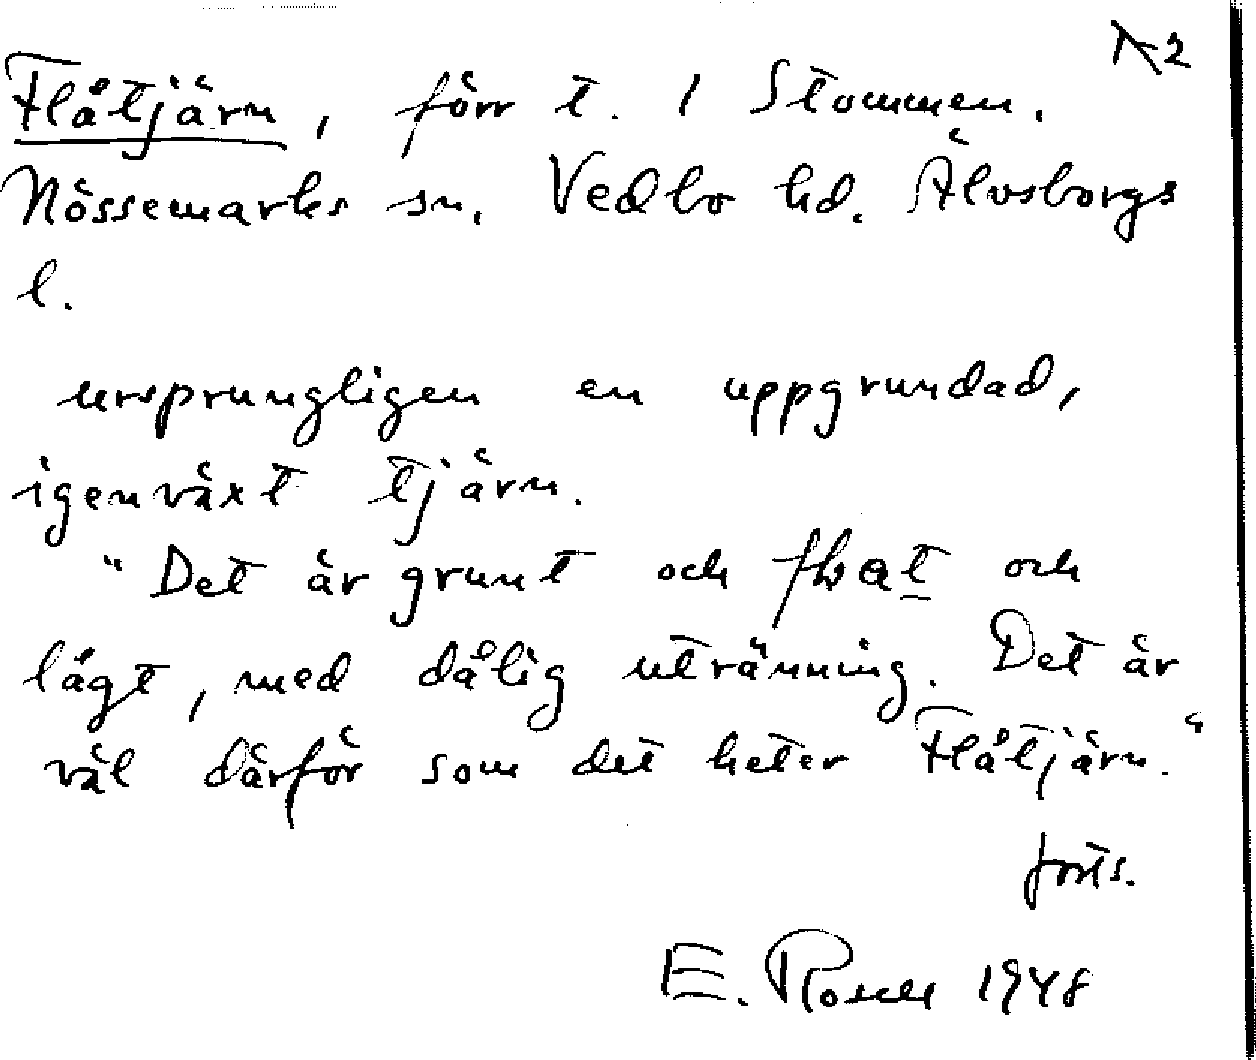 Flåtjärn, förr t. 1 Stommen.
Nössemarks sn. Vedbo hd. Älvsborgs
l.
ursprungligen en uppgrundad,
igenväxt tjärn.
"Det är grunt och och
lågt, med dålig utränning. Det är
väl därför som det heter Flåtjärn."
forts.
E. 1948